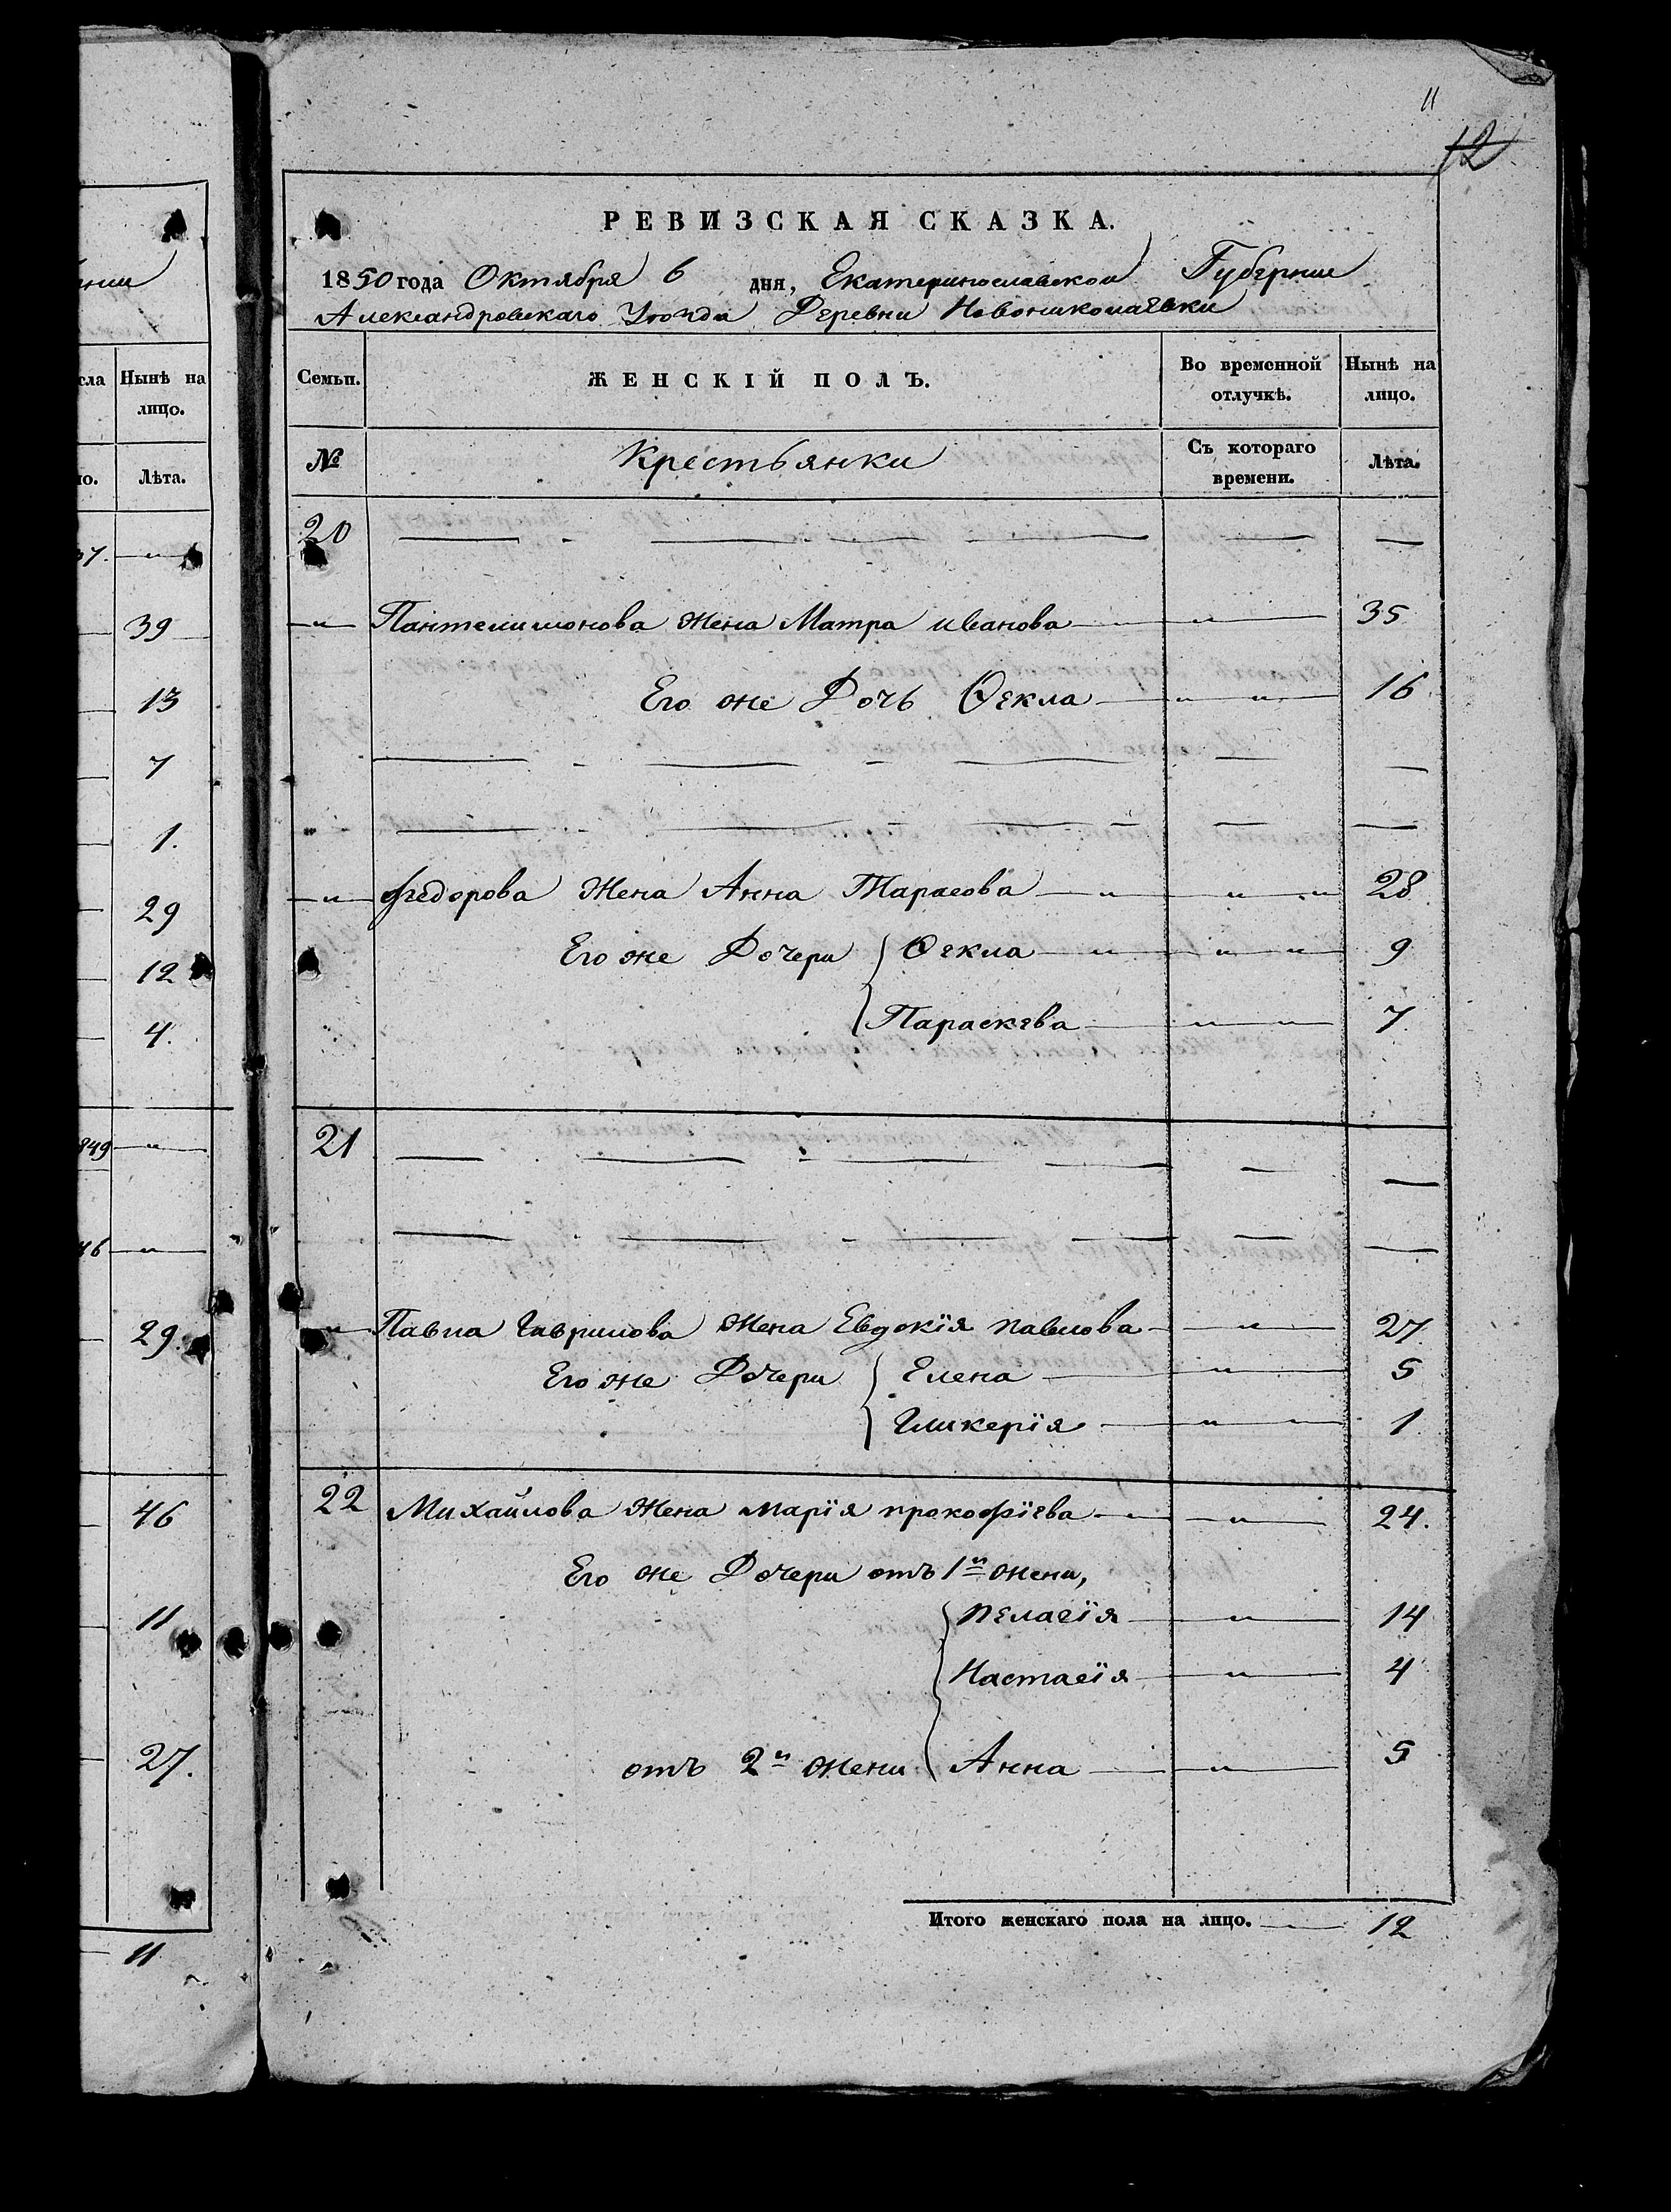 11
12
РЕВИЗСКАЯ СКАЗКА.
1850 года Октября 6 дня, Екатеринославской Губернии
Александровскаго Уѣзда Деревни Новониколаевки
Семьи. ЖЕНСКІЙ ПОЛЪ. Во временной отлучкѣ. Нынѣ на лицо.
№ Крестьянки Съ котораго времени. Лѣта.
20
Пантелимонова жена Матра иванова 35
Его же Дочь Ѳекла 16
Федорова Жена Анна Тарасова 28
Его же Дочери Ѳекла 9
Параскева 7
21
Павла Гаврилова жена Евдокія павлова 27
Его же Дочери Елена 5
Гликерія 1
22 Михайлова жена марія прокофіева 24.
Его же Дочери отъ 1й жени,
пелагія 14
Настасія 4
отъ 2й жени Анна 5
Итого женскаго пола на лицо. 12
Нынѣ на
лицо.
Лѣта.
39
13
7
1.
29
12
4.
849
46
29.
46
11
27.
11